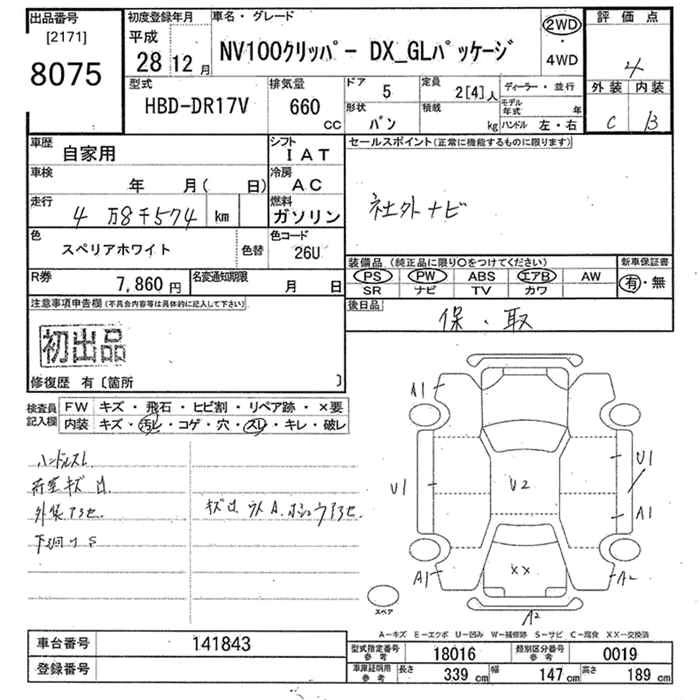 出品番号
[2171]
8075
初度登録年月
平成
28 12 月
車名・グレード
NV100クリッパー DX_GLパッケージ
2WD
・
4WD
評価点
4
外装 内装
C B
型式
HBD-DR17V
排気量
660
cc
ドア
5
定員
2[4]人
形状
バン
積載
kg
ディーラー・並行
モデル年式 年
ハンドル 左・右
車歴
自家用
シフト
IAT
車検
年 月( 日)
冷房
AC
走行
4万8千574 km
燃料
ガソリン
色
スペリアホワイト
色替
色コード
26U
R券
7,860 円
名変通知期限
月 日
セールスポイント(正常に機能するものに限ります)
社外ナビ
装備品 (純正品に限り○をつけてください)
PS PW ABS エアB AW
SR ナビ TV カワ
新車保証書
有・無
後日品
保・取
注意事項申告欄(不具合内容等は具体的に記入して下さい)
初出品
修復歴 有〔箇所 〕
検査員
記入欄
FW キズ・飛石・ヒビ割・リペア跡・×要
内装 キズ・汚レ・コゲ・穴・スレ・キレ・破レ
ハンドルスレ
荷室キズ凹
外装アセ
下廻りS
A1
U1
U1
U2
A1
A1
XX
A2
A2
スペア
A−キズ E−エクボ U−凹み W−補修跡 S−サビ C−腐食 XX−交換済
車台番号
141843
登録番号
型式指定番号
参考
18016
類別区分番号
参考
0019
車庫証明用
参考
長さ 339 cm 幅 147 cm 高さ 189 cm